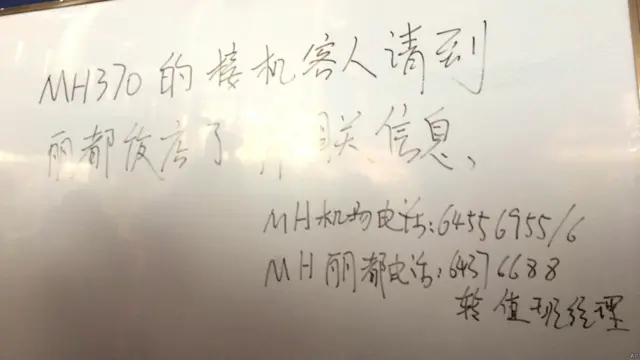 MH370的接机客人请到
丽都饭店了 联信息、
MH机场电话:64556955/6
MH丽都电话:64376688
转值班经理